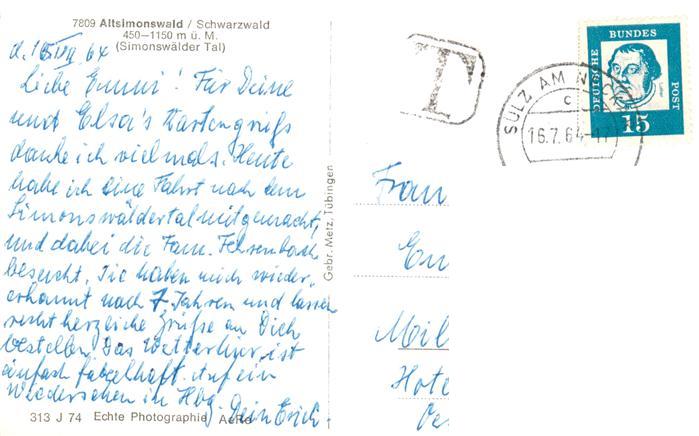 7809 Altsimonswald / Schwarzwald
450—1150 m ü. M.
(Simonswälder Tal)
Liebe Emmi! Für Deine
und Elsa's Kartengruß
danke ich vielmals. Heute
habe ich eine Fahrt nach dem
Simonswäldertal mitgemacht,
und dabei die Fam. Fehrenbach
besucht. Sie haben mich wieder-
erkannt nach 7 Jahren und lassen
recht herzliche Grüße an Dich
bestellen. Das Wetter hier ist
einfach fabelhaft. Auf ein
Wiedersehen in Hbg. Dein Erich.
313 J 74 Echte Photographie
Gebr. Metz, Tübingen
T
SULZ AM
c
16.7.64-17
DEUTSCHE
BUNDES
POST
Luther
15
Frau
Em
Mil
Hote